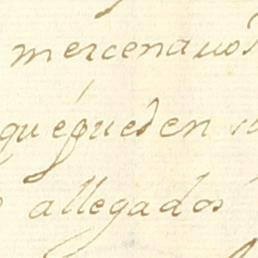 mercenarios
que queden
allegados